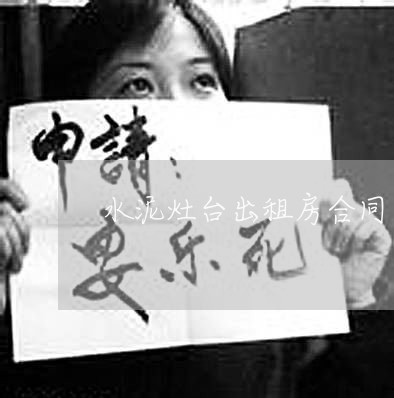 申請：
水泥灶台出租房合同
安乐死